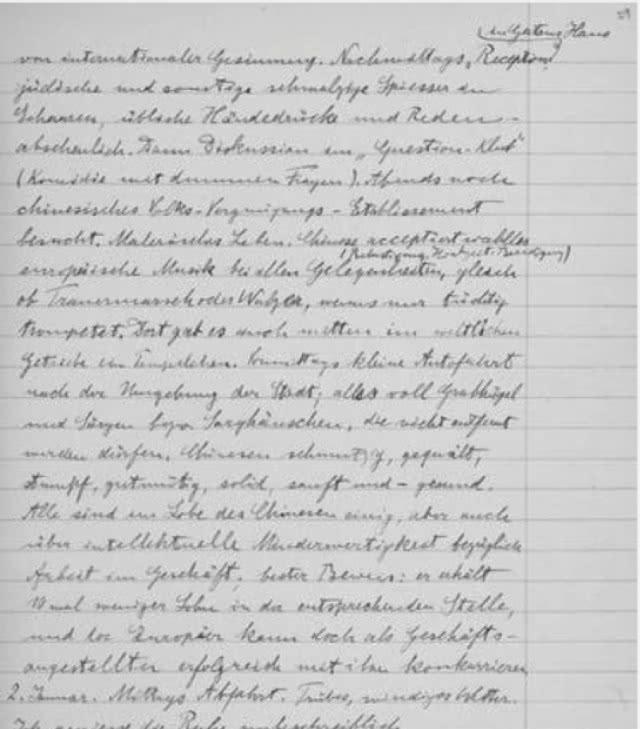 in Gatons Haus
von internationaler Gesinnung. Nachmittags „Reception“
jüdische und sonstige schmalzige Spiesser in
Scharen, übliche Händedrücke und Reden -
abscheulich. Dann Diskussion im „Question-Klub“
(Komödie mit dummen Fragen). Abends noch
chinesisches Volks-Vergnügungs-Etablissement
besucht. Malerisches Leben. Chinese acceptiert wahllos
(Beerdigung, Hochzeit,
europäische Musik bei allen Gelegenheiten, gleich
ob Trauermarsch oder Walzer, wenns nur tüchtig
trompetet. Dort gab es auch mitten im weltlichen
Getriebe ein Tempelchen. Vormittags kleine Autofahrt
nach der Umgebung der Stadt; alles voll Grabhügel
und Särgen bezw Sarghäuschen, die nicht entfernt
werden dürfen. Chinesen schmutzig, gequält,
stumpf, gutmütig, solid, sanft und - gesund.
Alle sind im Lobe des Chinesen einig, aber auch
über intellektuelle Minderwertigkeit bezüglich
Arbeit im Geschäft; bester Beweis: er erhält
10 mal weniger Lohn in der entsprechenden Stelle,
und der Europäer kann doch als Geschäfts-
angestellter erfolgreich mit ihm konkurrieren
2. Januar. Abfahrt. Trübes, windiges Wetter.
Ich geniesse die Ruhe unbeschreiblich